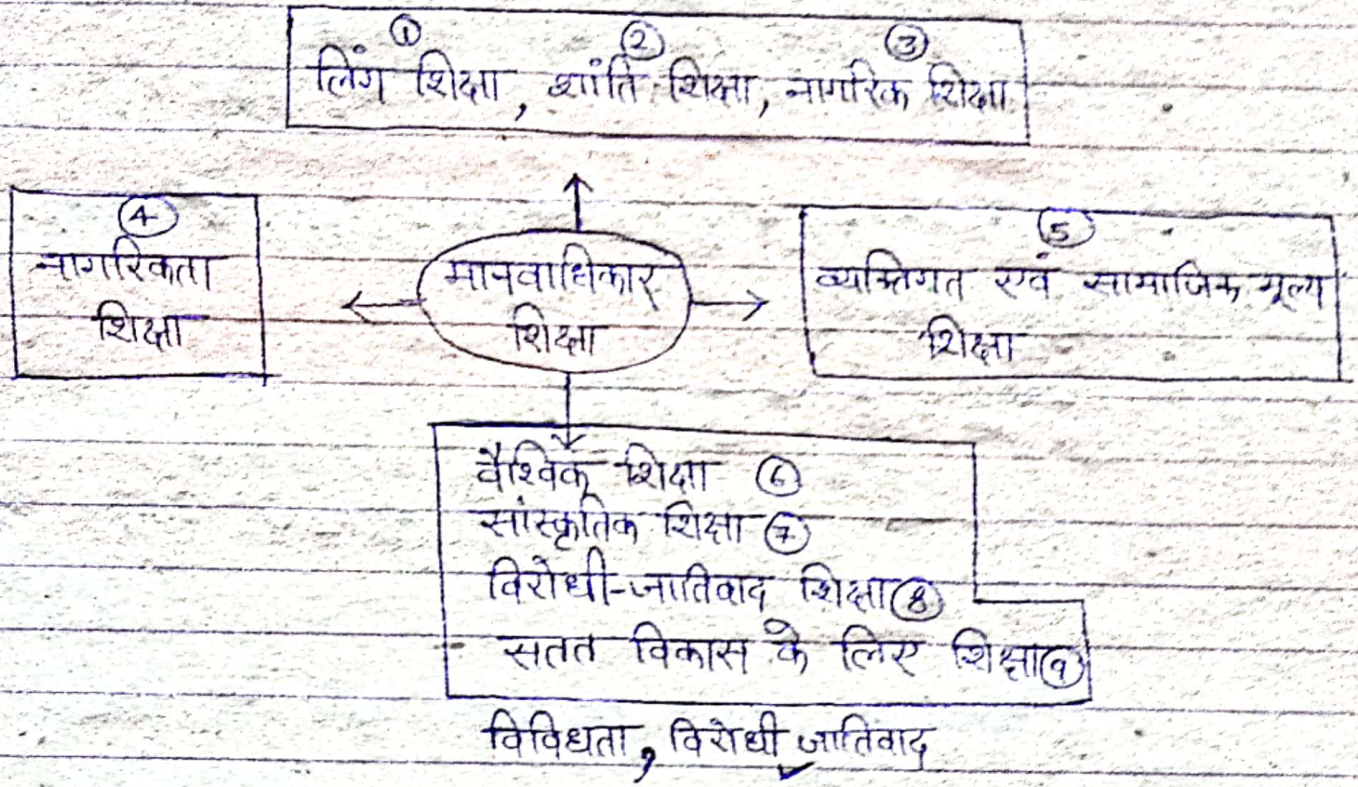 ① ② ③
लिंग शिक्षा, शांति शिक्षा, नागरिक शिक्षा
④
नागरिकता
शिक्षा
मानवाधिकार
शिक्षा
⑤
व्यक्तिगत एवं सामाजिक मूल्य
शिक्षा
वैश्विक शिक्षा ⑥
सांस्कृतिक शिक्षा ⑦
विरोधी-जातिवाद शिक्षा ⑧
सतत विकास के लिए शिक्षा ⑨
विविधता, विरोधी जातिवाद